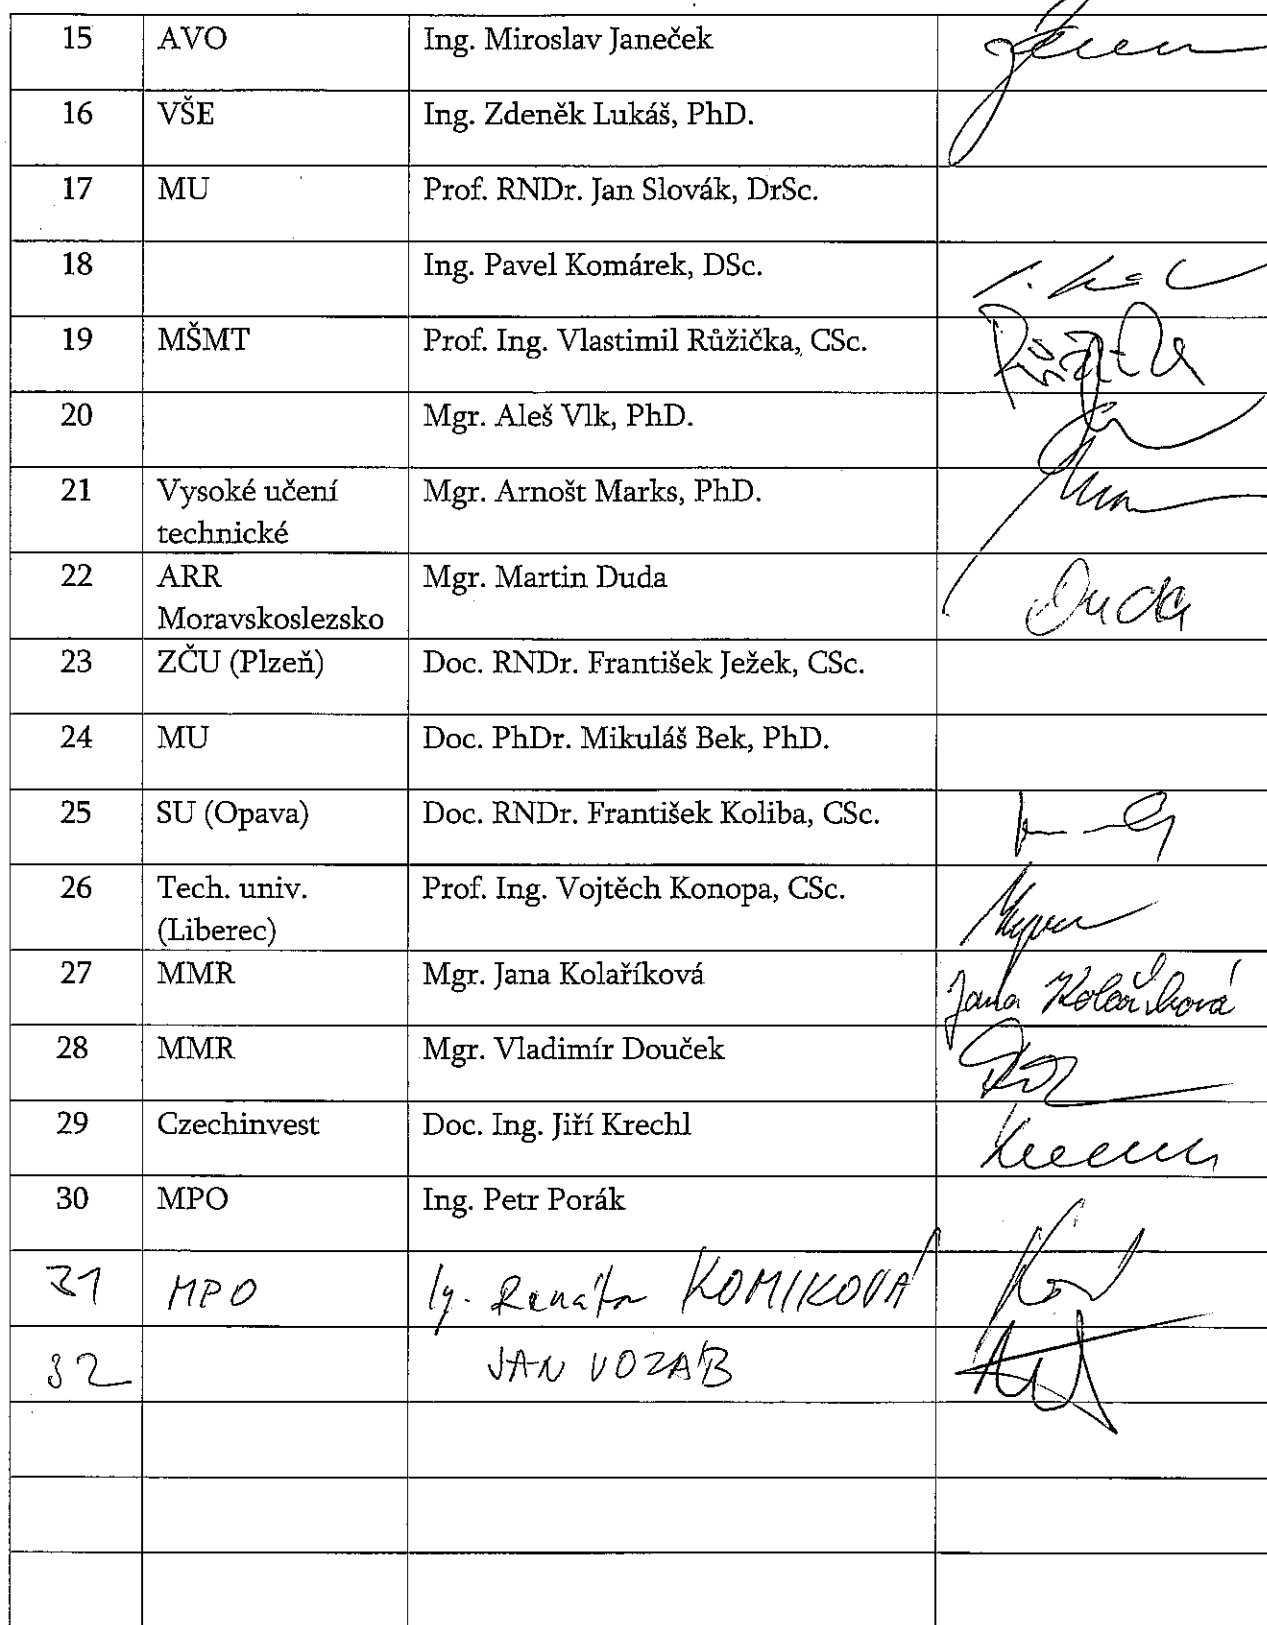 15 AVO Ing. Miroslav Janeček
16 VŠE Ing. Zdeněk Lukáš, PhD.
17 MU Prof. RNDr. Jan Slovák, DrSc.
18 Ing. Pavel Komárek, DSc.
19 MŠMT Prof. Ing. Vlastimil Růžička, CSc.
20 Mgr. Aleš Vlk, PhD.
21 Vysoké učení Mgr. Arnošt Marks, PhD.
technické
22 ARR Mgr. Martin Duda Duda
Moravskoslezsko
23 ZČU (Plzeň) Doc. RNDr. František Ježek, CSc.
24 MU Doc. PhDr. Mikuláš Bek, PhD.
25 SU (Opava) Doc. RNDr. František Koliba, CSc.
26 Tech. univ. Prof. Ing. Vojtěch Konopa, CSc.
(Liberec)
27 MMR Mgr. Jana Kolaříková Jana Kolaříková
28 MMR Mgr. Vladimír Douček
29 Czechinvest Doc. Ing. Jiří Krechl
30 MPO Ing. Petr Porák
31 MPO Ig. Renáta KOMIKOVÁ
32 JAN VOZÁB